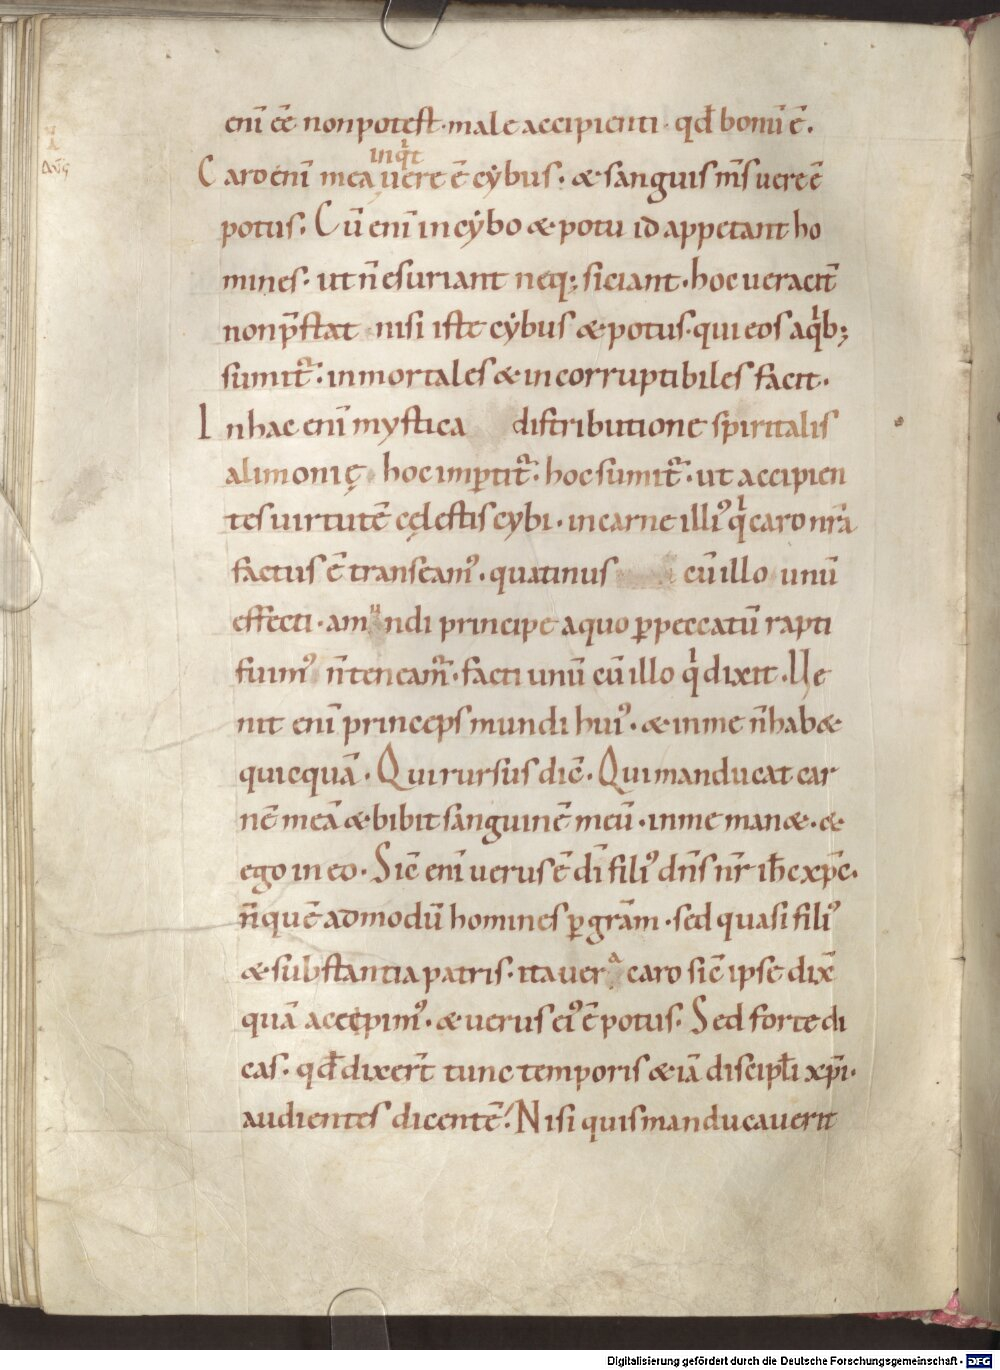 enī eē̄ non potest· male accipienti· qđ bonū ē̄.
Auḡ
inqͥt
Caro enī mea uere ē cẏbus· & sanguis m̄s uere ē
potus· Cū enī in cẏbo & potu id appetant ho
mines· ut n̄ esuriant neq; siciant· hoc ueracit̄
non p̄stat nisi iste cẏbus & potus· qui eos a qͥb;
sumit᷑· inmortales & incorruptibiles facit·
In hac enī mystica distributione spiritalis
alimonię hoc imp̱tit᷑· hoc sumit᷑· ut accipien
tes uirtutē cęlestis cybi· in carne illi᾽ qͥ caro nr̄a
factus ē transeam᾽· quatinus cū illo unū
effecti· a mundi principe a quo p̱ peccatū rapti
fuim᾽ n̄ teneam᷑· facti unū cū illo qͥ dixit· Ue
nit enī princeps mundi hui᾽· & in me n̄ hab&
quicquā· Qui rursus dic̄· Qui manducat car
nē meā & bibit sanguinē meū· in me man&· &
ego in eo· Sic̄ enī uerus ē dī fili᾽ dn̄s nr̄ ih̄c xp̄c·
n̄ quē admodū homines p̱ grām· sed quasi fili᾽
& substantia patris· ita uera caro sic̄ ipse dix̄
quā accepim᾽· & uerus ei᾽ ē potus· Sed forte di
cas· qđ dixer̄t tunc temporis & iā discipl̄i xp̄i·
audientes dicentē· Nisi quis manducauerit
Digitalisierung gefördert durch die Deutsche Forschungsgemeinschaft - DFG